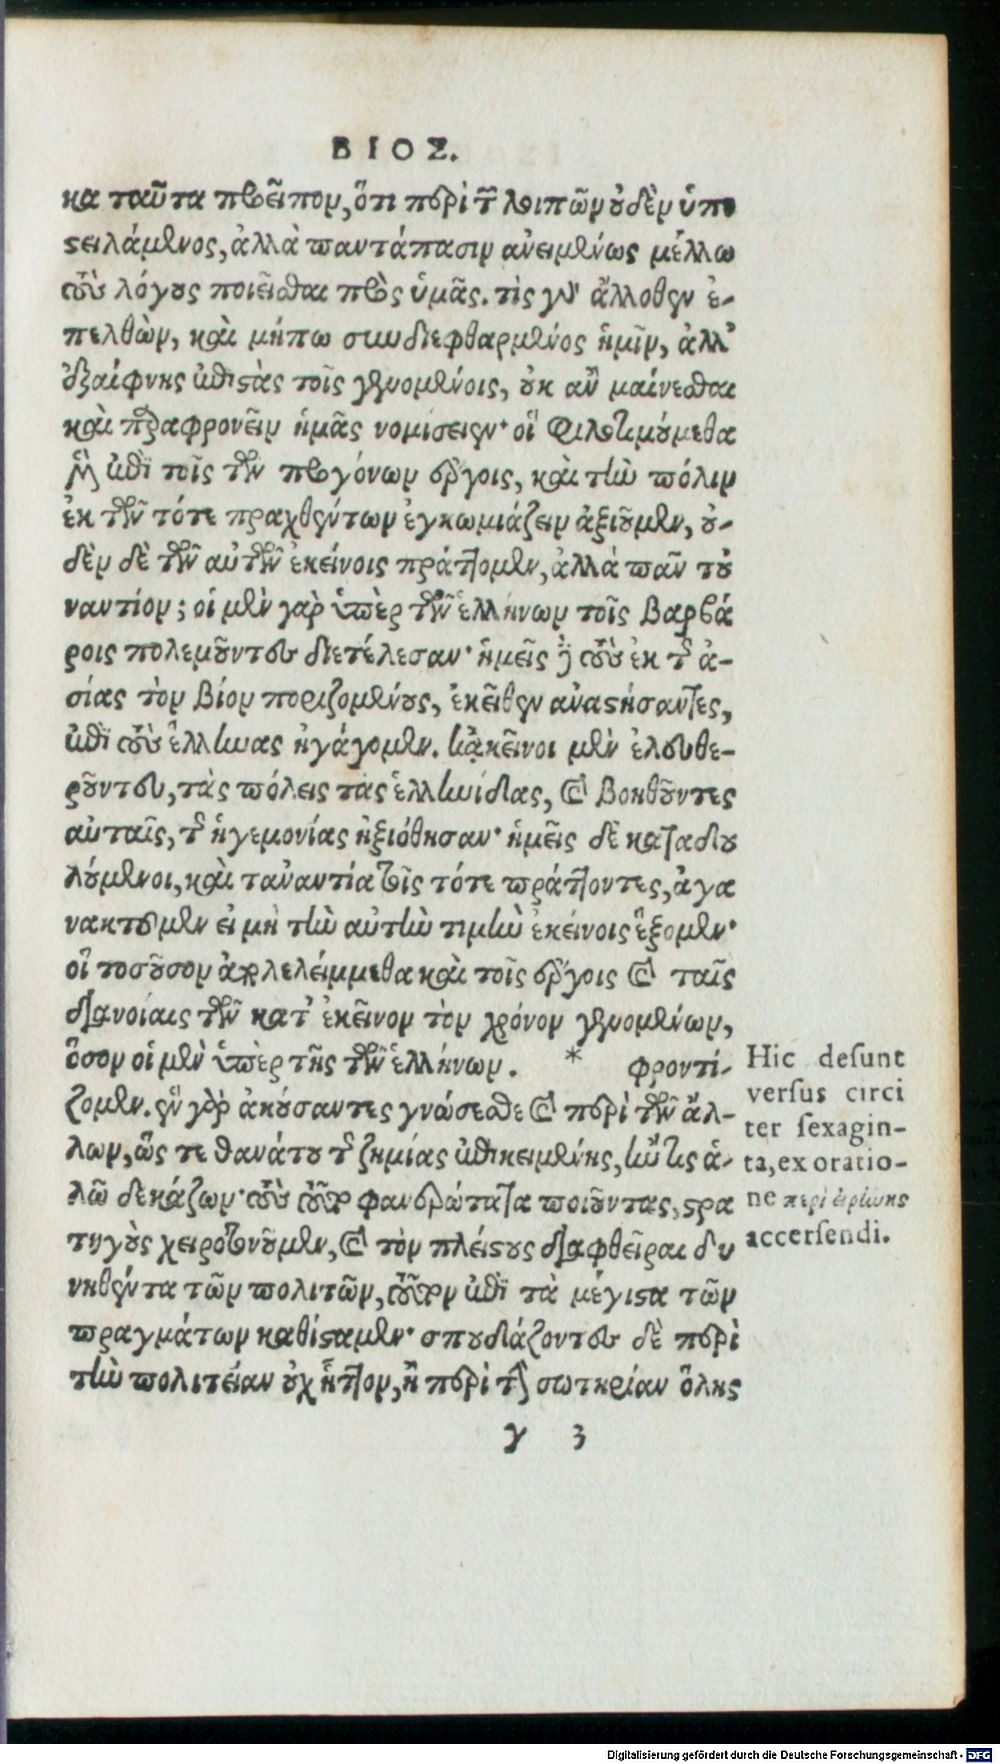 ΒΙΟΣ.
κα ταῦτα προεῖπον, ὅτι περὶ τ λοιπῶν οὐδὲν ὑπο
στειλάμενος, ἀλλὰ παντάπασιν ἀνειμένως μέλλω
τοὺς λόγους ποιεῖσθαι πρὸς ὑμᾶς. τίς γὰρ ἄλλοθεν ἐ-
πελθὼν, καὶ μήπω συνδιεφθαρμένος ἡμῖν, ἀλλ'
ἐξαίφνης ἐπιστὰς τοῖς γενομένοις, οὐκ ἂν μαίνεσθαι
καὶ παραφρονεῖν ἡμᾶς νομίσειεν· οἳ φιλοτιμούμεθα
μὲν ἐπὶ τοῖς τῶν προγόνων ἔργοις, καὶ τὴν πόλιν
ἐκ τῶν τότε πραχθέντων ἐγκωμιάζειν ἀξιοῦμεν, οὐ-
δὲν δὲ τῶν αὐτῶν ἐκείνοις πράττομεν, ἀλλὰ πᾶν τοὐ
ναντίον; οἱ μὲν γὰρ ὑπὲρ τῶν ἑλλήνων τοῖς βαρβά
ροις πολεμοῦντες διετέλεσαν· ἡμεῖς δὲ τοὺς ἐκ τῆς ἀ-
σίας τὸν βίον ποριζομένους, ἐκεῖθεν ἀναστήσαντες,
ἐπὶ τοὺς ἕλληνας ἠγάγομεν. κἀκεῖνοι μὲν ἐλευθε-
ροῦντες, τὰς πόλεις τὰς ἑλληνίδας, καὶ βοηθοῦντες
αὐταῖς, τῆς ἡγεμονίας ἠξιώθησαν· ἡμεῖς δὲ καταδου
λούμενοι, καὶ τἀναντία τοῖς τότε πράττοντες, ἀγα
νακτοῦμεν εἰ μὴ τὴν αὐτὴν τιμὴν ἐκείνοις ἕξομεν·
οἳ τοσοῦτον ἀπολελείμμεθα καὶ τοῖς ἔργοις καὶ ταῖς
διανοίαις τῶν κατ' ἐκεῖνον τὸν χρόνον γενομένων,
ὅσον οἱ μὲν ὑπὲρ τῆς τῶν ἑλλήνων. * φροντί-
ζομεν. ἓν γὰρ ἀκούσαντες γνώσεσθε καὶ περὶ τῶν ἄλ-
λων, ὥς τε θανάτου τῆς ζημίας ἐπικειμένης, ἤν τις ἁ-
λῶ δεκάζων· τοὺς τοῦτο φανερώτατα ποιοῦντας, στρα
τηγοὺς χειροτονοῦμεν, καὶ τὸν πλείστους διαφθεῖραι δυ
νηθέντα τῶν πολιτῶν, τοῦτον ἐπὶ τὰ μέγιστα τῶν
πραγμάτων καθίσταμεν· σπουδάζοντες δὲ περὶ
τὴν πολιτείαν οὐχ ἧττον, ἢ περὶ τὴν σωτηρίαν ὅλης
γ 3
Hic desunt
versus circi
ter sexagin-
ta, ex oratio-
ne περὶ εἰρήνης
accersendi.
Digitalisierung gefördert durch die Deutsche Forschungsgemeinschaft - DFG